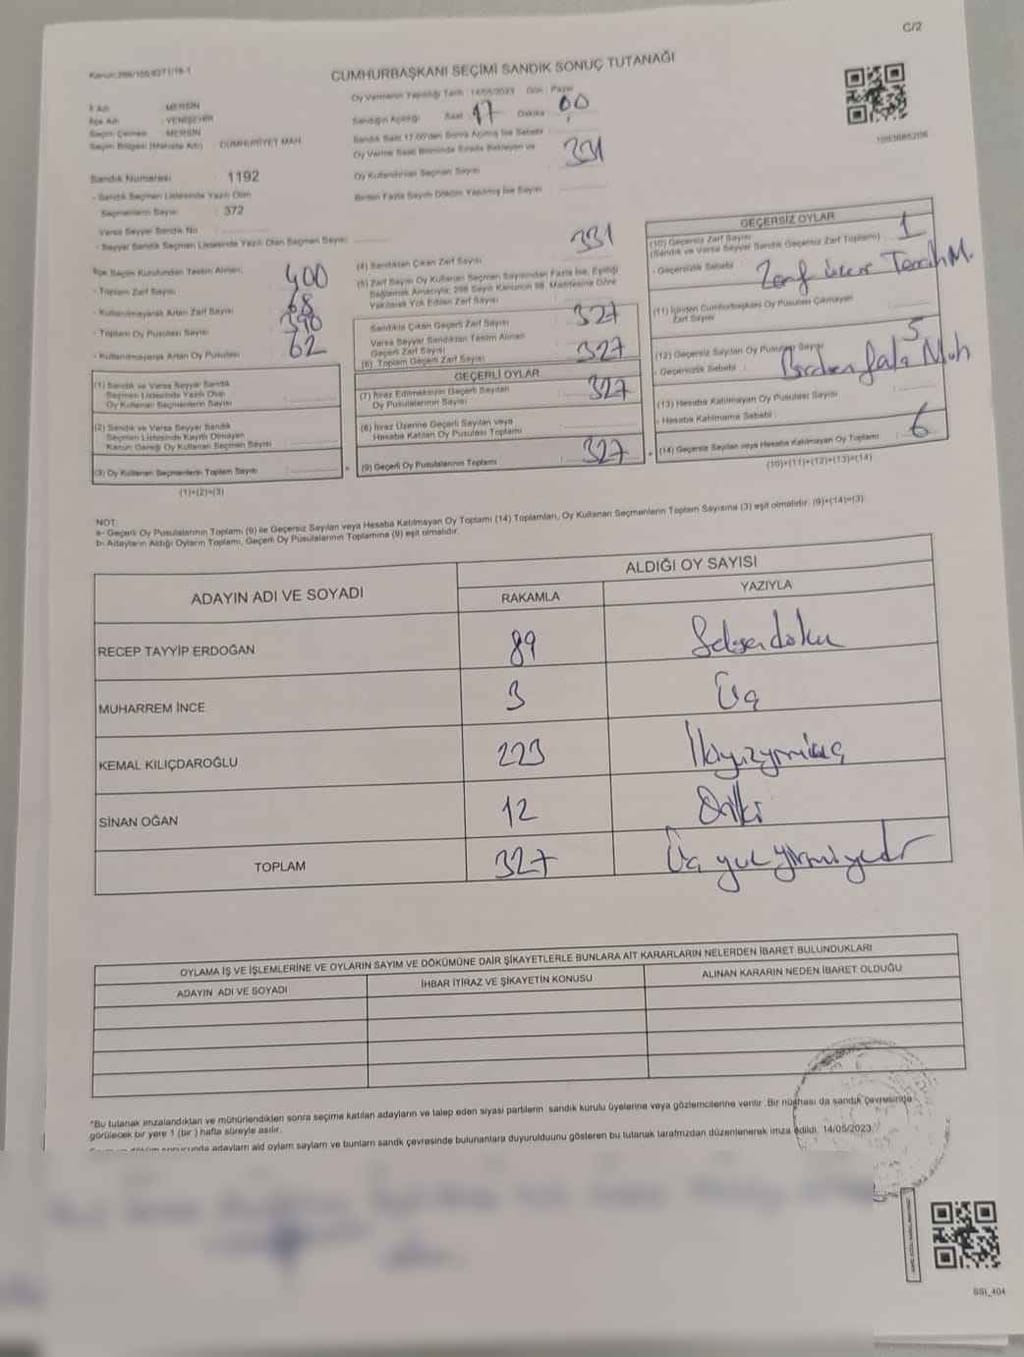 C/2
CUMHURBAŞKANI SEÇİMİ SANDIK SONUÇ TUTANAĞI
Oy Vermenin Yapıldığı Tarih : 14/05/2023 Gün : Pazar
İl Adı : MERSİN
İlçe Adı : YENİŞEHİR
Seçim Çevresi : MERSİN
Seçim Bölgesi (Mahalle Adı) : CUMHURİYET MAH.
Sandığın Açıldığı Saat 17 Dakika 00
Sandık Saat 17:00'den Sonra Açılmış İse Sebebi
Oy Verme Saati Bitiminde Sırada Bekleyen ve
Oy Kullandırılan Seçmen Sayısı 331
Birden Fazla Sayım Döküm Yapılmış İse Sayısı
Sandık Numarası : 1192
- Sandık Seçmen Listesinde Yazılı Olan
Seçmenlerin Sayısı : 372
Varsa Seyyar Sandık No :
- Seyyar Sandık Seçmen Listesinde Yazılı Olan Seçmen Sayısı :
İlçe Seçim Kurulundan Teslim Alınan;
- Toplam Zarf Sayısı 400
- Kullanılmayarak Artan Zarf Sayısı 68
- Toplam Oy Pusulası Sayısı 390
- Kullanılmayarak Artan Oy Pusulası 62
(1) Sandık ve Varsa Seyyar Sandık
Seçmen Listesinde Yazılı Olup
Oy Kullanan Seçmenlerin Sayısı
(2) Sandık ve Varsa Seyyar Sandık
Seçmen Listesinde Kayıtlı Olmayan
Kanun Gereği Oy Kullanan Seçmen Sayısı
(3) Oy Kullanan Seçmenlerin Toplam Sayısı
(1)+(2)=(3)
(4) Sandıktan Çıkan Zarf Sayısı 331
(5) Zarf Sayısı Oy Kullanan Seçmen Sayısından Fazla İse, Eşitliği
Sağlamak Amacıyla; 298 Sayılı Kanunun 98. Maddesine Göre
Yakılarak Yok Edilen Zarf Sayısı
Sandıkta Çıkan Geçerli Zarf Sayısı 327
Varsa Seyyar Sandıktan Teslim Alınan
Geçerli Zarf Sayısı
(6) Toplam Geçerli Zarf Sayısı 327
GEÇERLİ OYLAR
(7) İtiraz Edilmeksizin Geçerli Sayılan
Oy Pusulalarının Sayısı 327
(8) İtiraz Üzerine Geçerli Sayılan veya
Hesaba Katılan Oy Pusulası Toplamı
(9) Geçerli Oy Pusulalarının Toplamı 327
GEÇERSİZ OYLAR
(10) Geçersiz Zarf Sayısı 1
(Sandık ve Varsa Seyyar Sandık Geçersiz Zarf Toplamı)
- Geçersizlik Sebebi Zarf üzeri Tercih M.
(11) İçinden Cumhurbaşkanı Oy Pusulası Çıkmayan
Zarf Sayısı
(12) Geçersiz Sayılan Oy Pusulası Sayısı 5
- Geçersizlik Sebebi : Birden fala Muh
(13) Hesaba Katılmayan Oy Pusulası Sayısı
- Hesaba Katılmama Sebebi :
(14) Geçersiz Sayılan veya Hesaba Katılmayan Oy Toplamı 6
(10)+(11)+(12)+(13)=(14)
NOT:
a- Geçerli Oy Pusulalarının Toplamı (9) ile Geçersiz Sayılan veya Hesaba Katılmayan Oy Toplamı (14) Toplamları, Oy Kullanan Seçmenlerin Toplam Sayısına (3) eşit olmalıdır. (9)+(14)=(3)
b- Adayların Aldığı Oyların Toplamı, Geçerli Oy Pusulalarının Toplamına (9) eşit olmalıdır.
ADAYIN ADI VE SOYADI
ALDIĞI OY SAYISI
RAKAMLA YAZIYLA
RECEP TAYYİP ERDOĞAN 89 Seksendoku
MUHARREM İNCE 3 Üç
KEMAL KILIÇDAROĞLU 223 İkiyüzyirmiüç
SİNAN OĞAN 12 Oniki
TOPLAM 327 Üç yüz yirmiyedi
OYLAMA İŞ VE İŞLEMLERİNE VE OYLARIN SAYIM VE DÖKÜMÜNE DAİR ŞİKAYETLERLE BUNLARA AİT KARARLARIN NELERDEN İBARET BULUNDUKLARI
ADAYIN ADI VE SOYADI İHBAR İTİRAZ VE ŞİKAYETİN KONUSU ALINAN KARARIN NEDEN İBARET OLDUĞU
*Bu tutanak imzalandıktan ve mühürlendikten sonra seçime katılan adayların ve talep eden siyasi partilerin sandık kurulu üyelerine veya gözlemcilerine verilir. Bir nüshası da sandık çevresinde
görülecek bir yere 1 (bir ) hafta süreyle asılır.
adayların aid oyların sayısını ve bunların sandık çevresinde bulunanlara duyurulduunu gösteren bu tutanak tarafımızdan düzenlenerek imza edildi. 14/05/2023
SSI_404